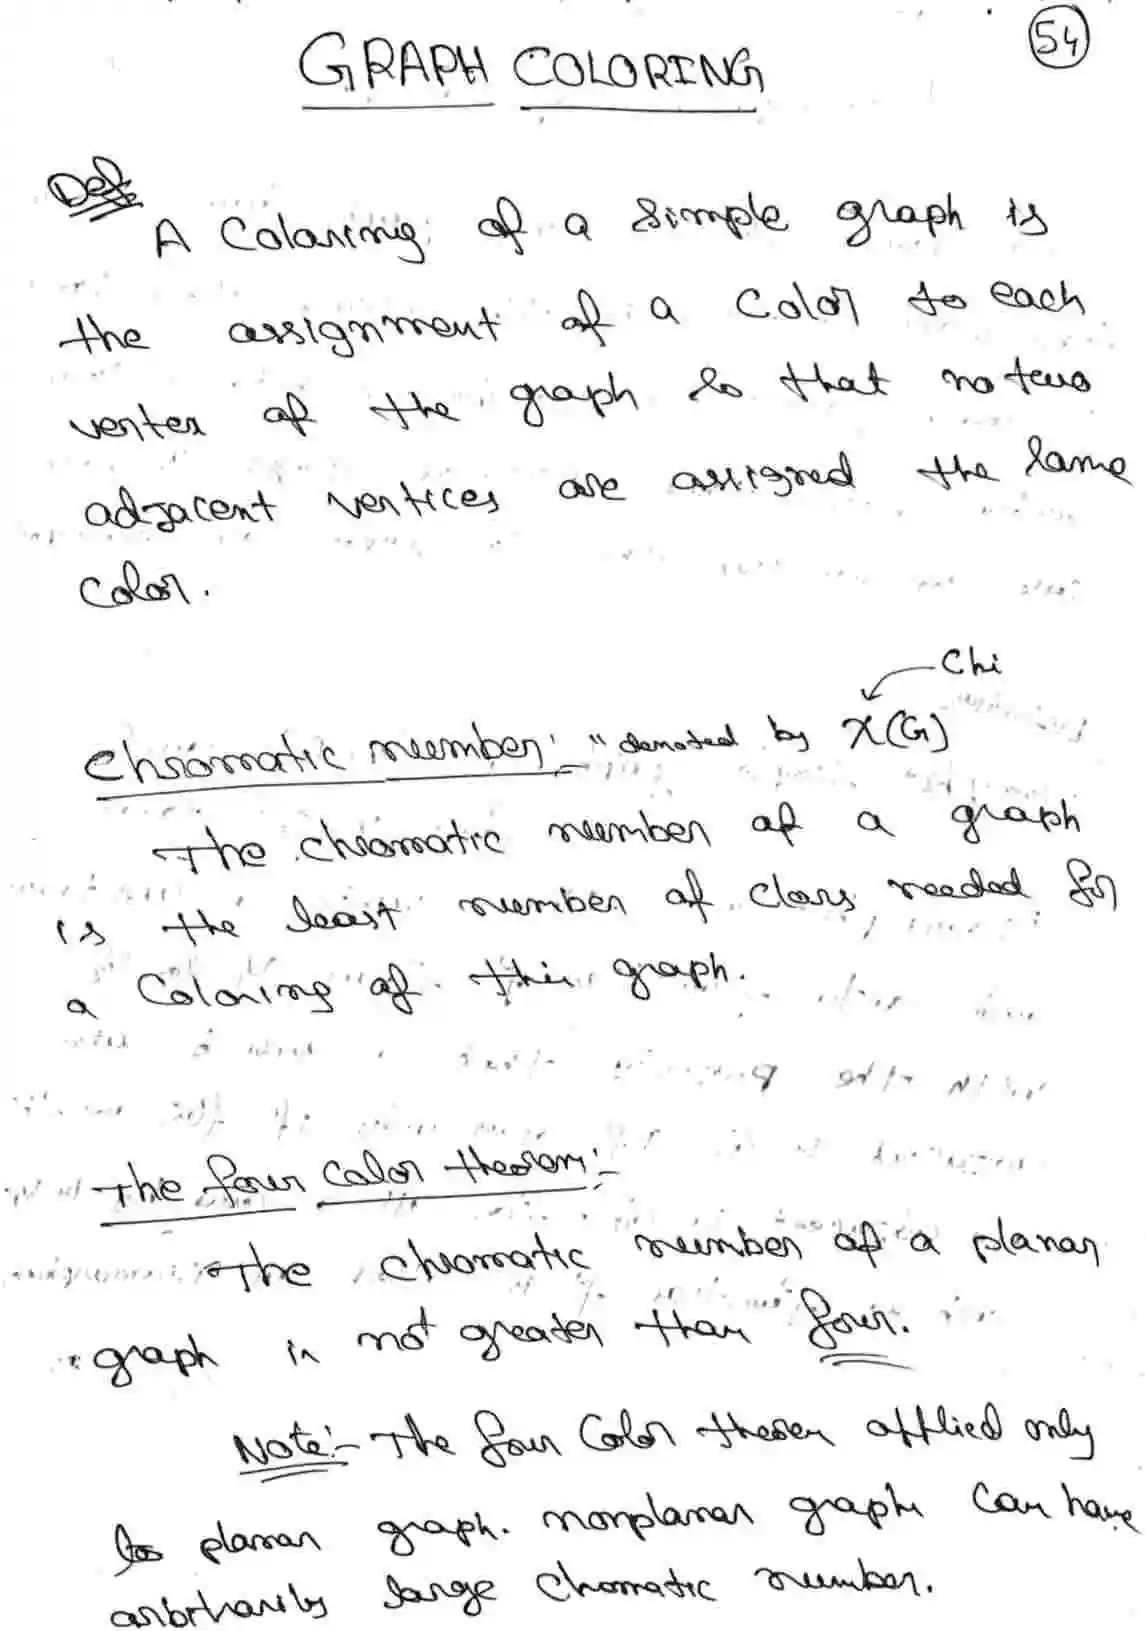 54
GRAPH COLORING
Def:
A Coloring of a simple graph is
the assignment of a color to each
vertex of the graph so that no two
adjacent vertices are assigned the same
color.
Chi
Chromatic number:- "denoted by χ(G)
The chromatic number of a graph
is the least number of clors needed for
a Coloring of this graph.
The four color theorem:-
The chromatic number of a planar
graph is not greater than four.
Note:- The four Color theorem applied only
to planar graph. nonplanar graphs can have
arbitrarily large chromatic number.